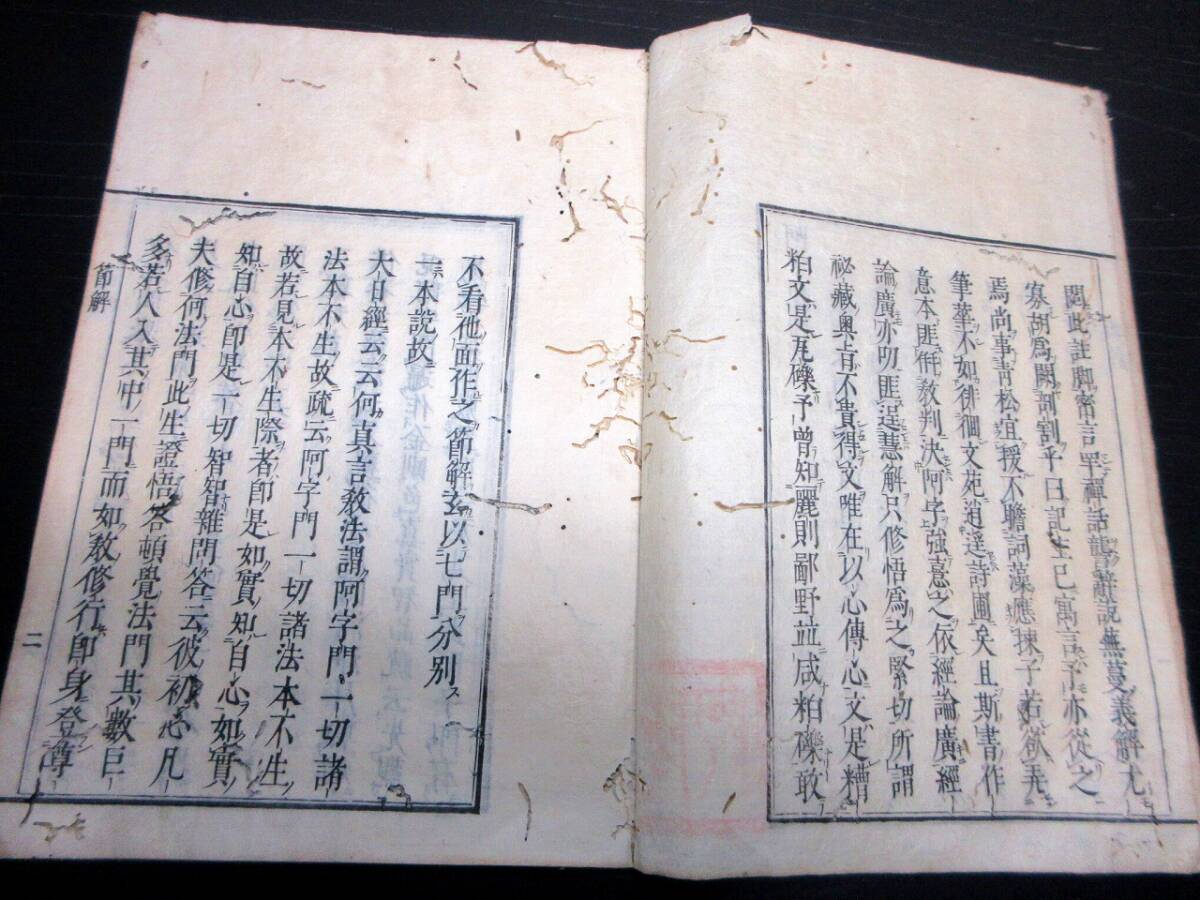 閱此註脚密言罕禪話龍聱辭說蕪蔓義解尤
寡胡爲闕剖割乎曰記主已寓言予亦從之
焉尚事靑松宜援不贍詞藻應揀子若欲弄
筆華不如徘徊文苑逍遥詩圃矣且斯書作
意本匪俻敎判決阿字強憙之依經論廣經
論廣亦叨匪逞慧解只修悟爲之緊切所謂
祕藏奧旨不貴得文唯在以心傳心文是糟
粕文是瓦礫予曾知麗則鄙野並咸粕礫敢
不看他面作之節解玄以七門分别
一本說故
大日經云云何真言敎法謂阿字門一切諸
法本不生故疏云阿字門一切諸法本不生
故若見本不生際者卽是如實知自心如實
知自心卽是一切智智雜問答云彼初心凡
夫修何法門此生證悟答頓覺法門其數巨
多若人入其中一門而如敎修行卽身登尊
節解
二